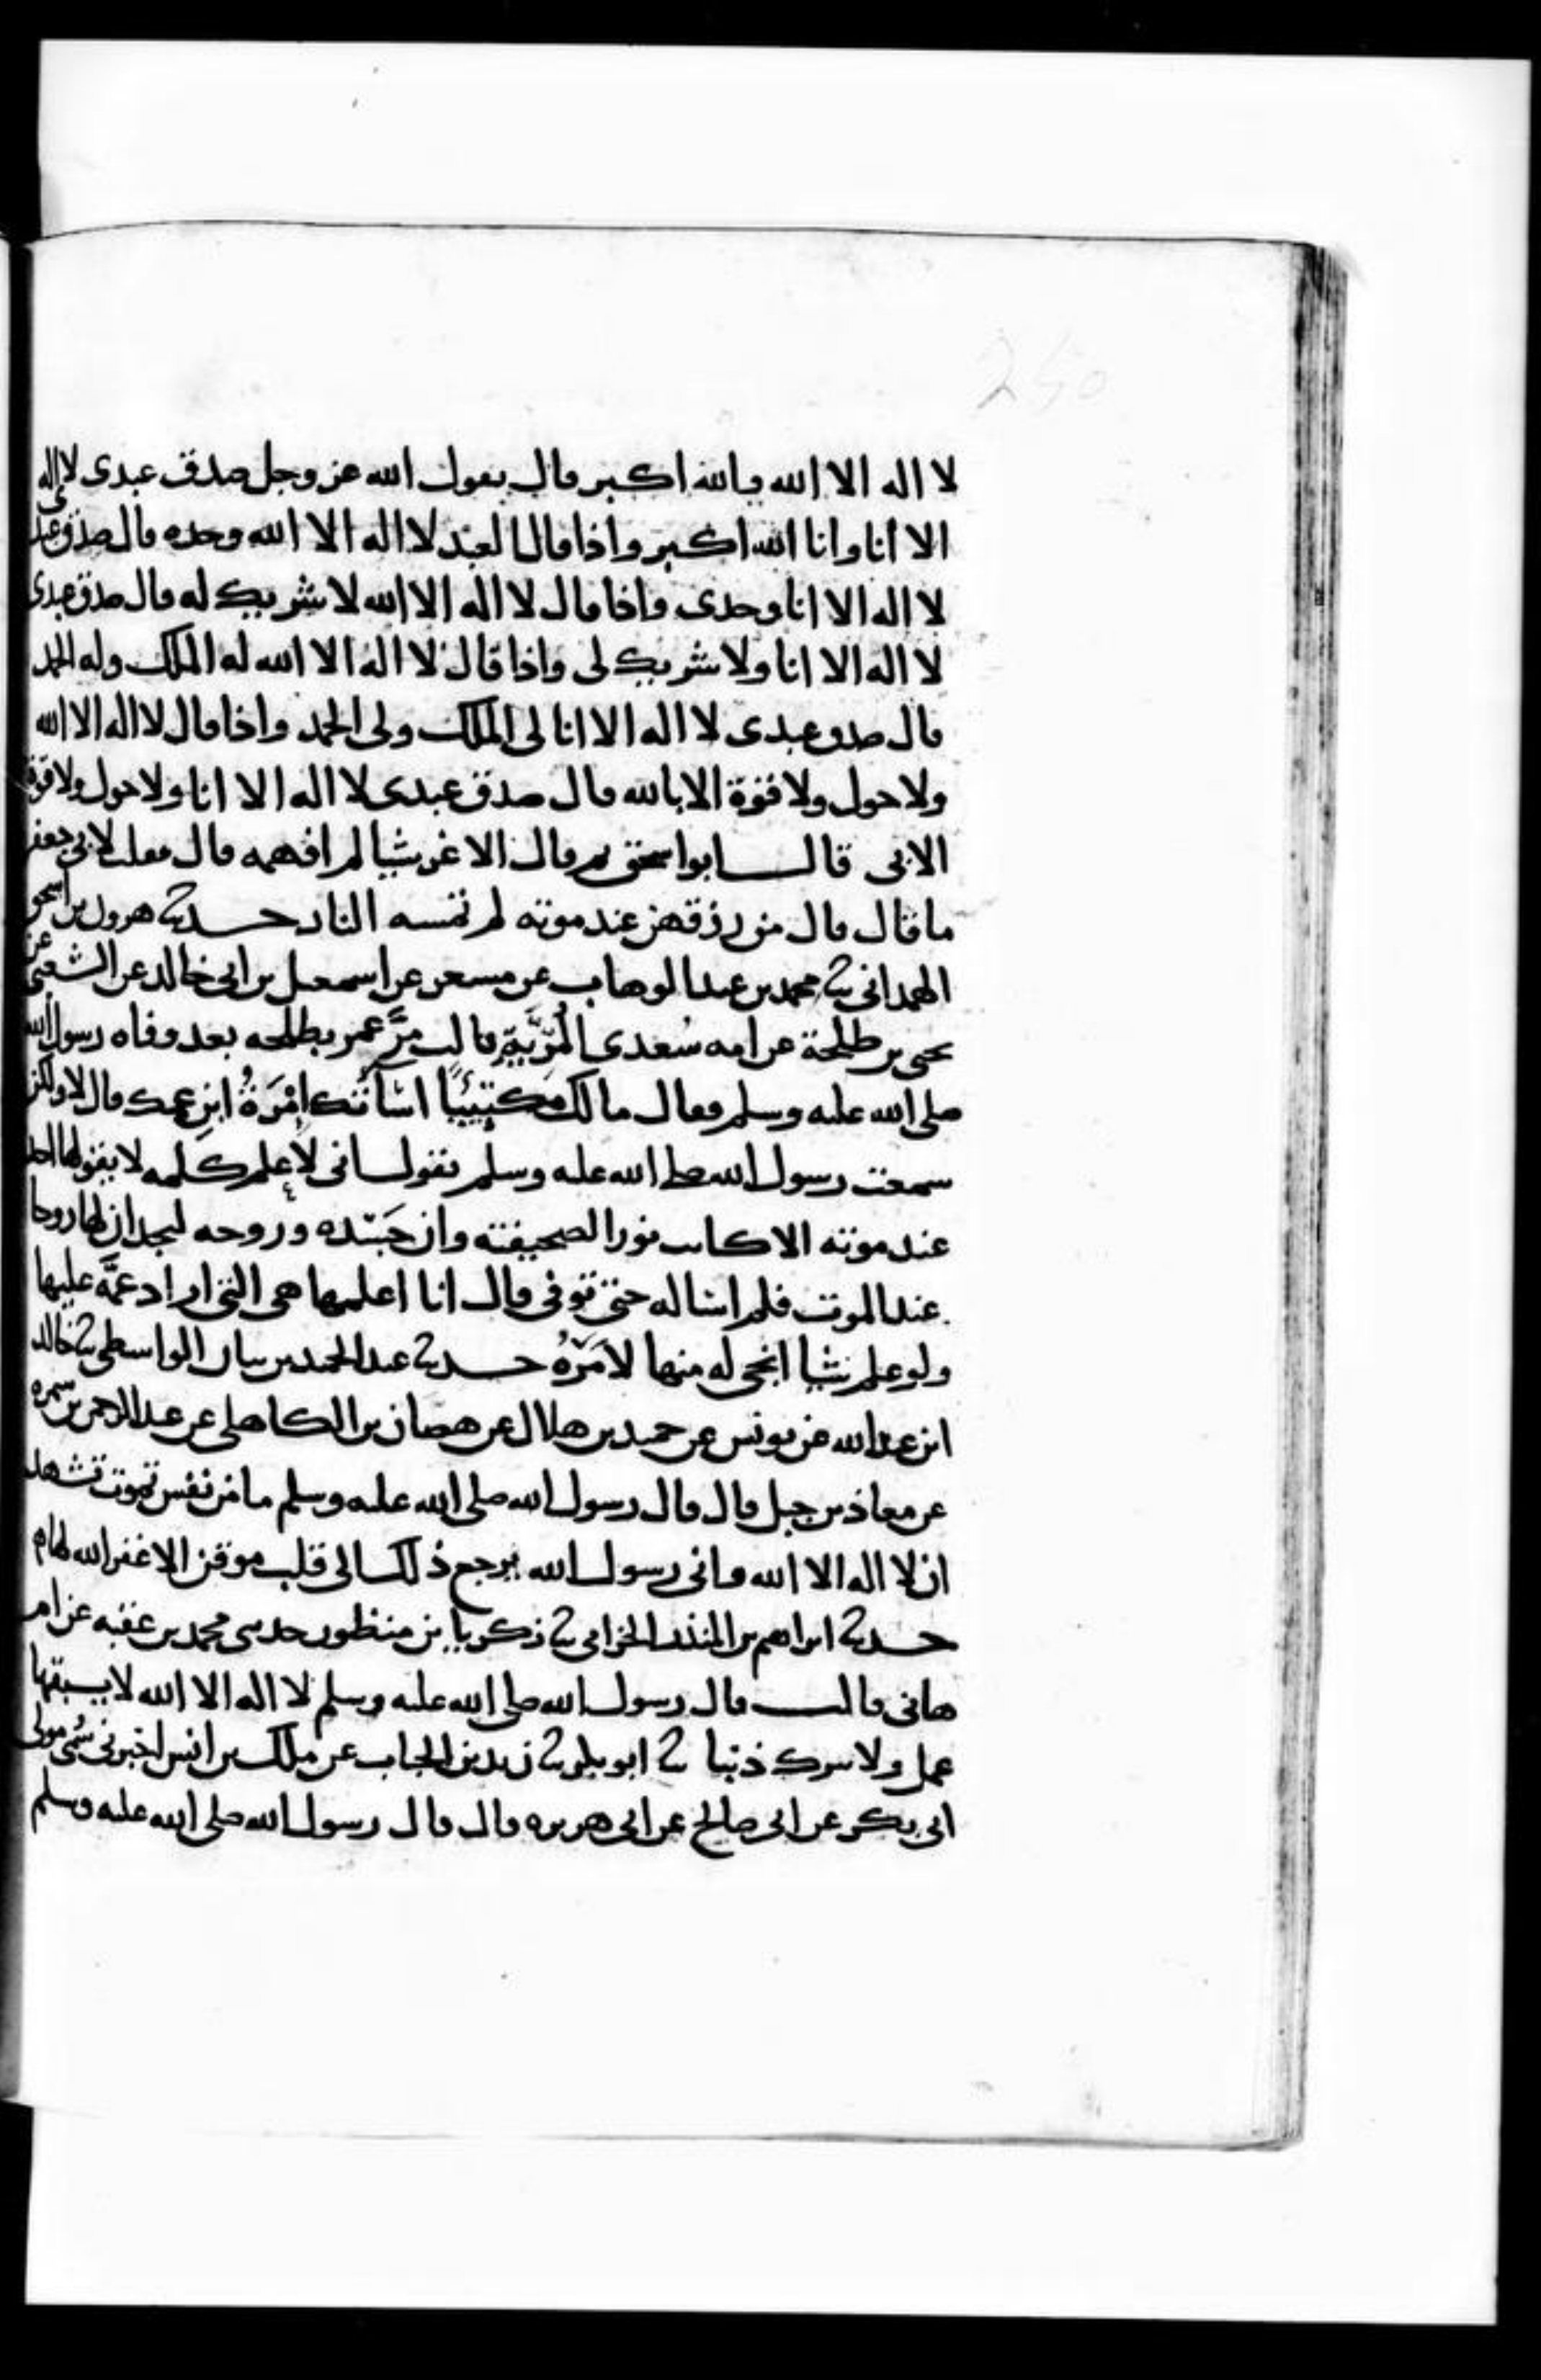 لا اله الا الله والله اكبر قال يقول الله عز وجل صدق عبدى لا اله
الا أنا وانا الله اكبر واذا قال العبد لا اله الا الله وحده قال صدق عبدى
لا اله الا انا وحدى واذا قال لا اله الا الله لا شريك له قال صدق عبدى
لا اله الا انا ولا شريك لى واذا قال لا اله الا الله له الملك وله الحمد
قال صدق عبدى لا اله الا انا لى الملك ولى الحمد واذا قال لا اله الا الله
ولا حول ولا قوة الا بالله قال صدق عبدى لا اله الا انا ولا حول ولا قوة
الا بى قال ابو اسحق ثم قال الاغر شيا لم افهمه قال فقلت لابى جعفر
ما قال قال من رزقهن عند موته لم تمسه النار حدثنا هرون بن اسحق
الهمدانى ثنا محمد بن عبد الوهاب عن مسعر عن اسمعيل بن ابى خالد عن الشعبى عن
يحيى بن طلحة عن امه سُعدى المُرِّيَّةِ قالت مرَّ عمر بطلحه بعد وفاه رسول الله
صلى الله عليه وسلم فقال ما لك مكتيبًا اساتك امْرَةُ ابنِ عمك قال لا ولكن
سمعت رسول الله صلى الله عليه وسلم يقول انى لاعلم كلمه لا يقولها احد
عند موته الا كانت نورا لصحيفته وان جَسَده وروحه ليجدان لها روحا
عند الموت فلم اساله حتى توفى قال انا اعلمها هى التى اراد عمَّه عليها
ولو علم شيا انجى له منها لامَرَهُ حدثنا عبد الحميد بن بيان الواسطى ثنا خالد
ابن عبد الله عن يونس عن حميد بن هلال عن هصان بن الكاهلى عن عبد الرحمن بن سمره
عن معاذ بن جبل قال قال رسول الله صلى الله عليه وسلم ما من نفس تموت تشهد
ان لا اله الا الله وانى رسول الله يرجع ذلك الى قلب موقن الا غفر الله لها م
حدثنا ابراهيم بن المنذر الحزامى ثنا زكريا بن منظور حدثنى محمد بن عقبه عن ام
هانى قالت قال رسول الله صلى الله عليه وسلم لا اله الا الله لا يسبقها
عمل ولا تترك ذنبا ثنا ابو بكر ثنا زيد بن الحباب عن ملك بن انس اخبرنى سُمى مولى
ابى بكر عن ابى صالح عن ابى هريره قال قال رسول الله صلى الله عليه وسلم